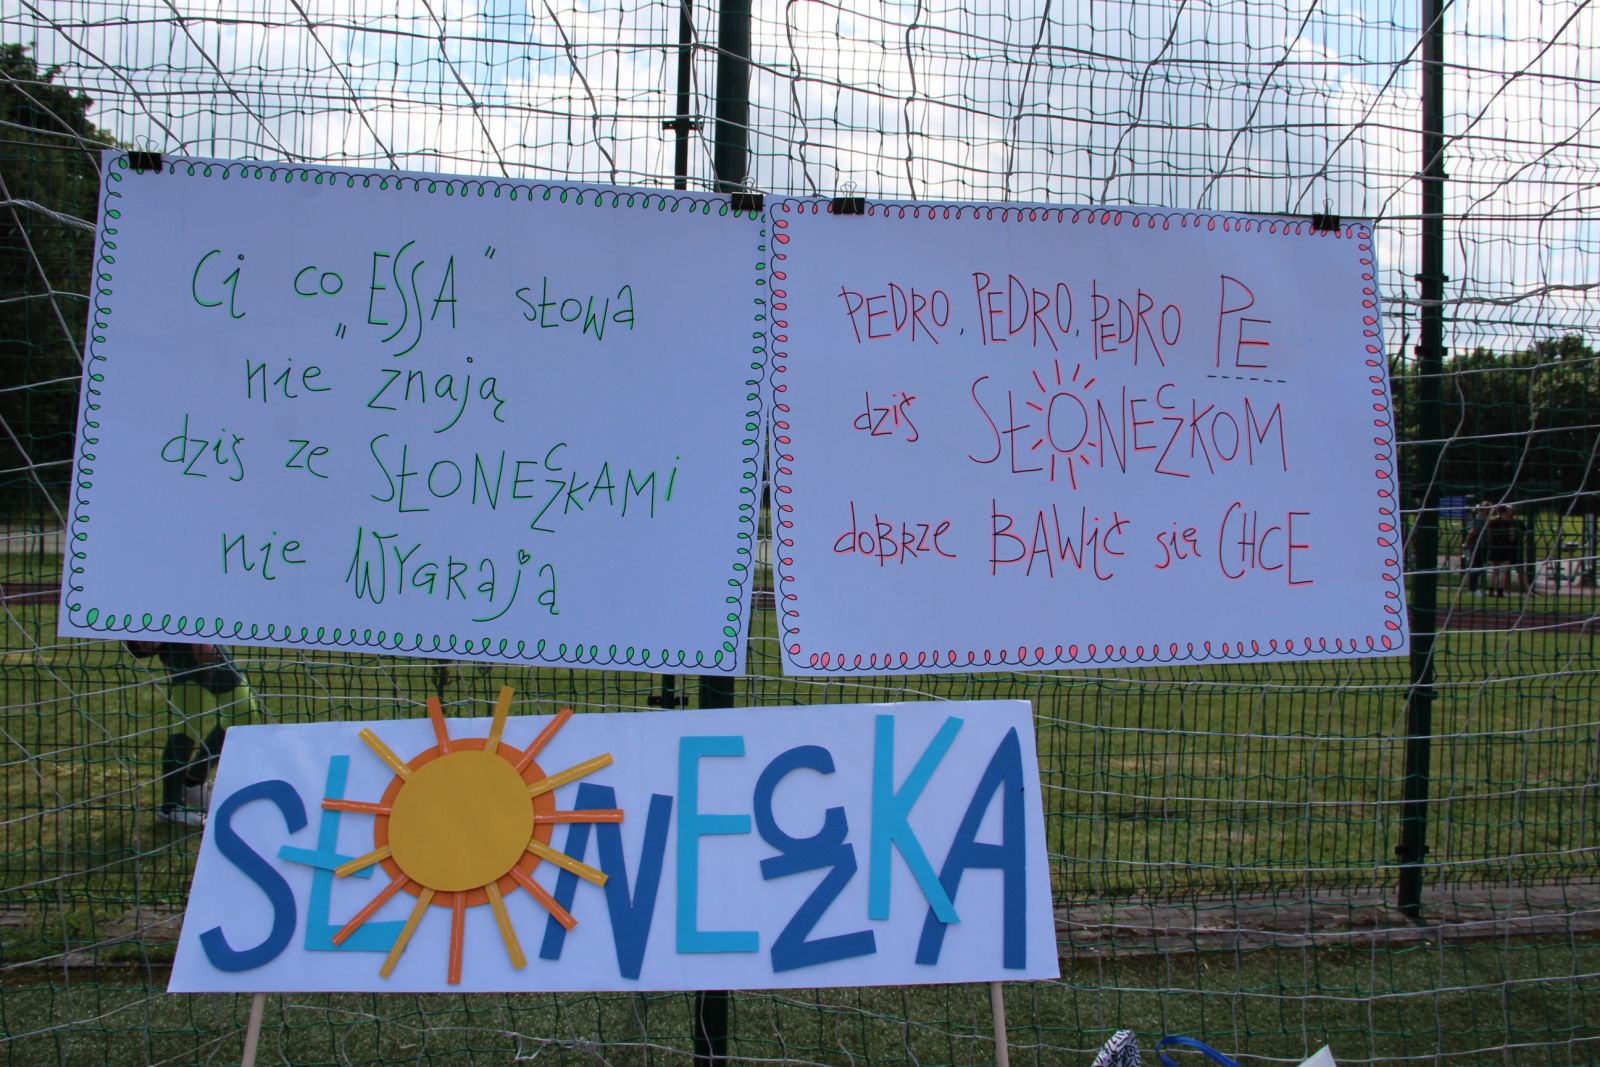 Ci co „ESSA” słowa
nie znają
dziś ze SŁONECZKAMi
nie WYGRAją
PEDRO, PEDRO, PEDRO PE
dziś SŁONECZKOM
doBRze BAWić się CHCE
SŁONECZKA